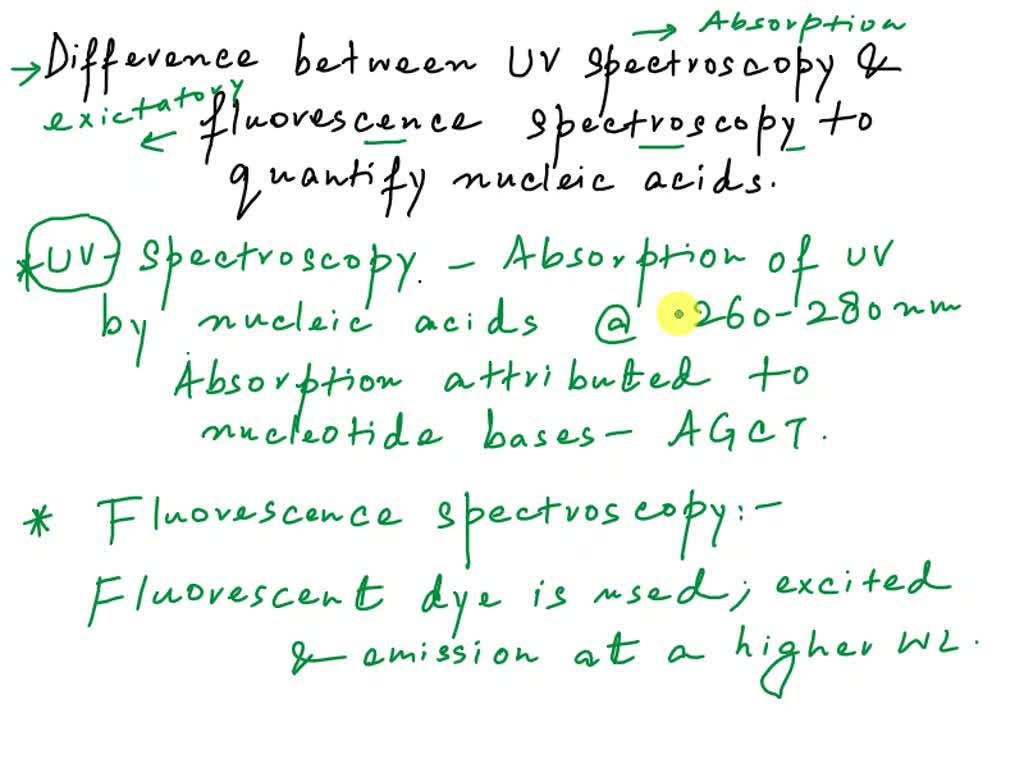 → Absorption
→ Difference between UV Spectroscopy &
exictatory ← fluorescence spectroscopy to
quantify nucleic acids.
* UV - Spectroscopy. - Absorption of UV
by nucleic acids @ 260-280nm
Absorption attributed to
nucleotide bases - AGCT.
* Fluorescence spectroscopy:-
Fluorescent dye is used; excited
& emission at a higher WL.